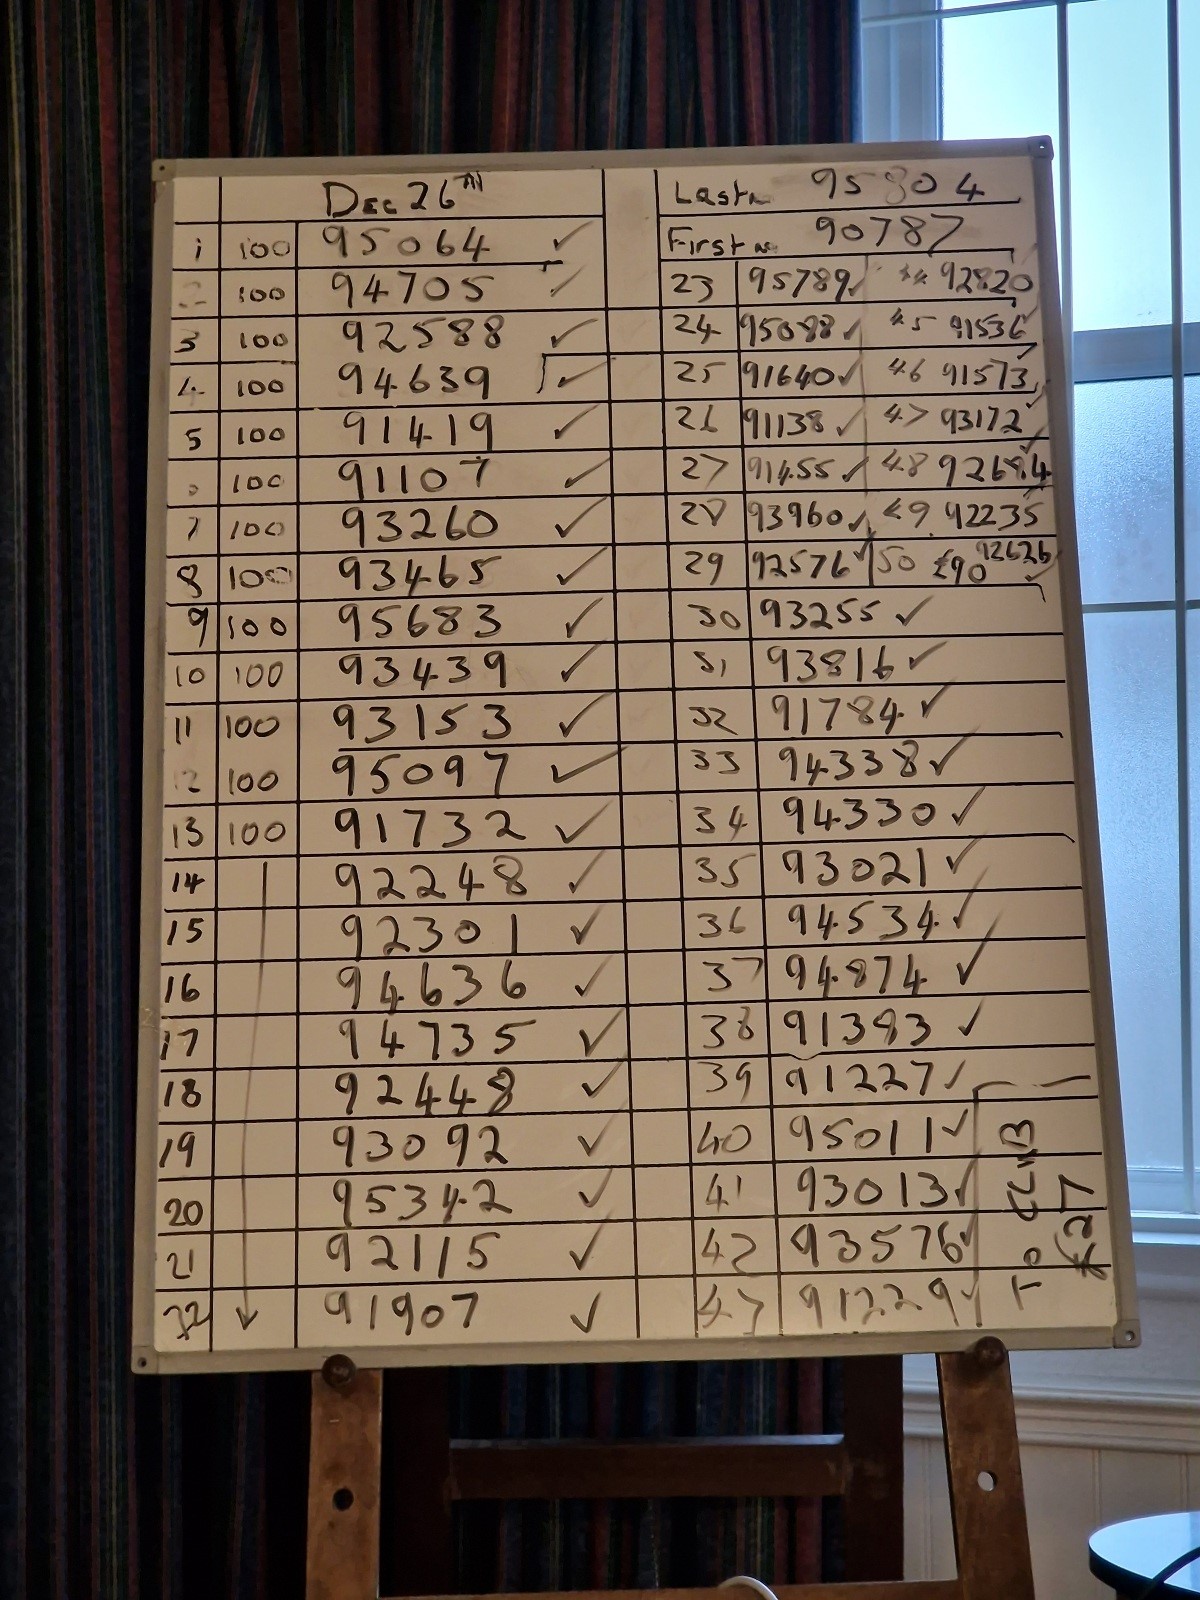 Dec 26TH
1 100 95064 ✓
2 100 94705 ✓
3 100 92588 ✓
4 100 94639 ✓
5 100 91419 ✓
100 91107 ✓
7 100 93260 ✓
8 100 93465 ✓
9 100 95683 ✓
10 100 93439 ✓
11 100 93153 ✓
12 100 95097 ✓
13 100 91732 ✓
14 92248 ✓
15 92301 ✓
16 94636 ✓
17 94735 ✓
18 92448 ✓
19 93092 ✓
20 95342 ✓
21 92115 ✓
22 91907 ✓
Last 95804
First 90787
23 95789 ✓ 44 92820 ✓
24 95088 ✓ 45 91536 ✓
25 91640 ✓ 46 91573 ✓
26 91138 ✓ 47 93172 ✓
27 91455 ✓ 48 92684 ✓
28 93960 ✓ 49 92235 ✓
29 92576 ✓ 50 £90 92626 ✓
30 93255 ✓
31 93816 ✓
32 91784 ✓
33 94338 ✓
34 94330 ✓
35 93021 ✓
36 94534 ✓
37 94874 ✓
38 91393 ✓
39 91227 ✓
40 95011 ✓
41 93013 ✓
42 93576 ✓
43 91229 ✓
To CLUB
£27